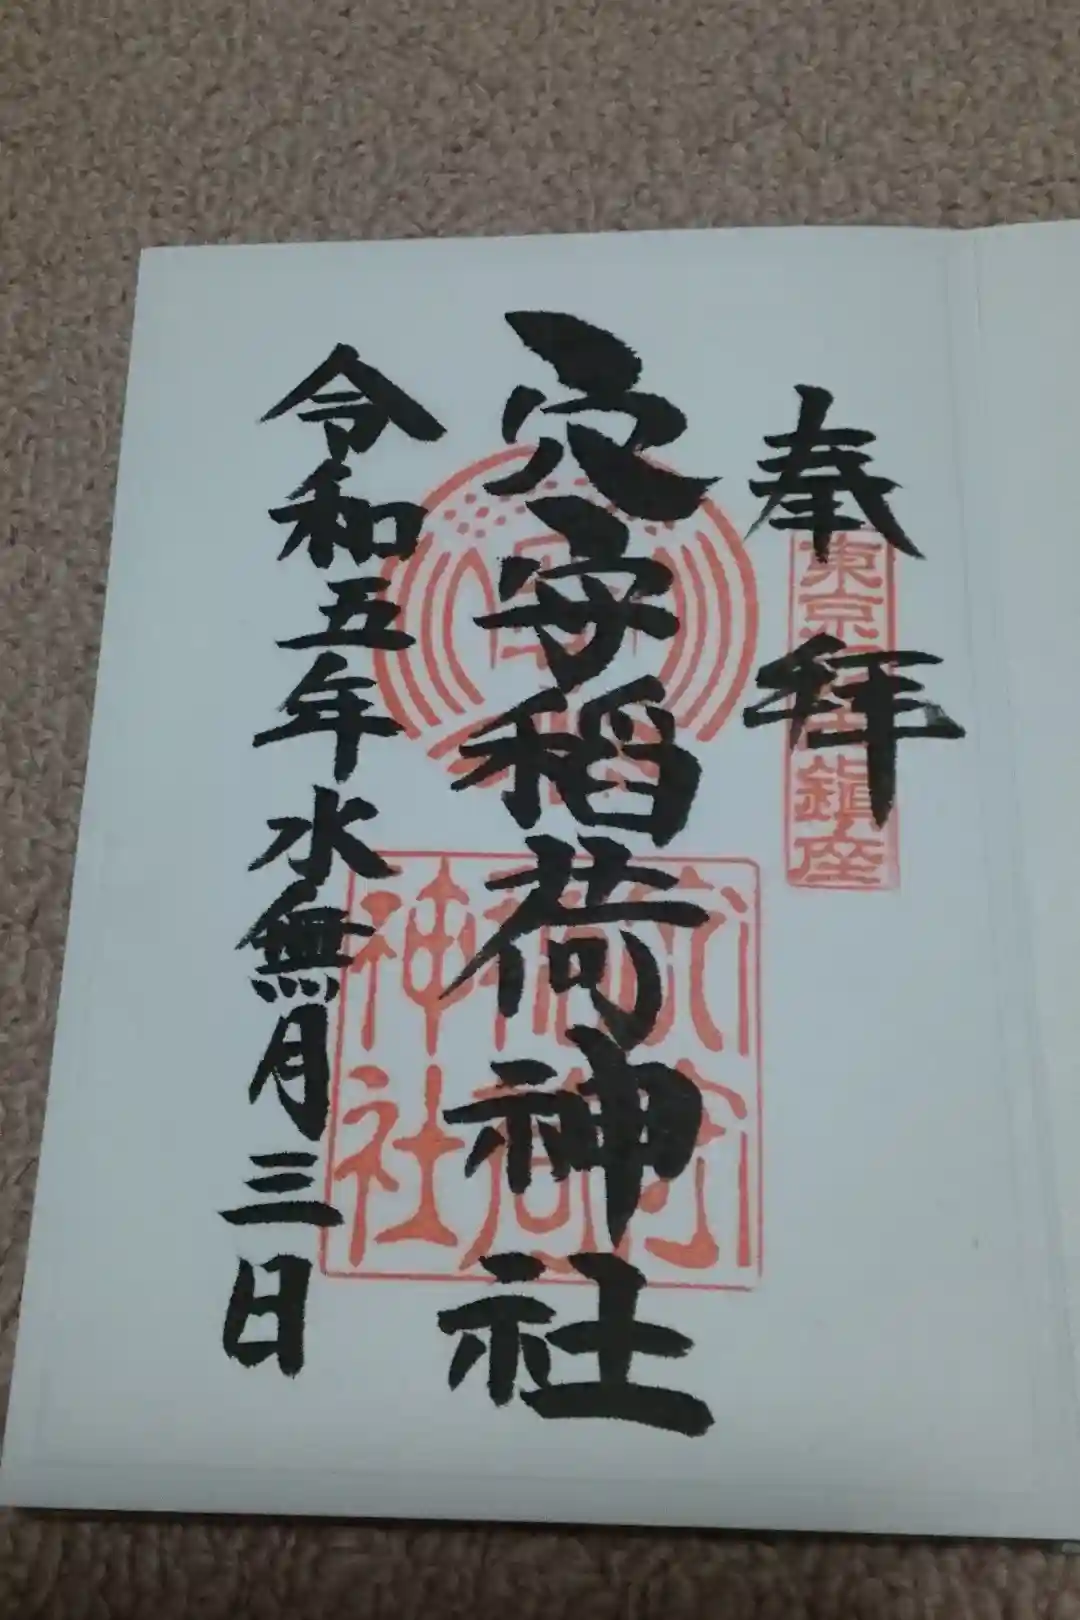 奉拝
東京 鎮座
穴守稲荷神社
穴守
稲荷
神社
令和五年水無月三日